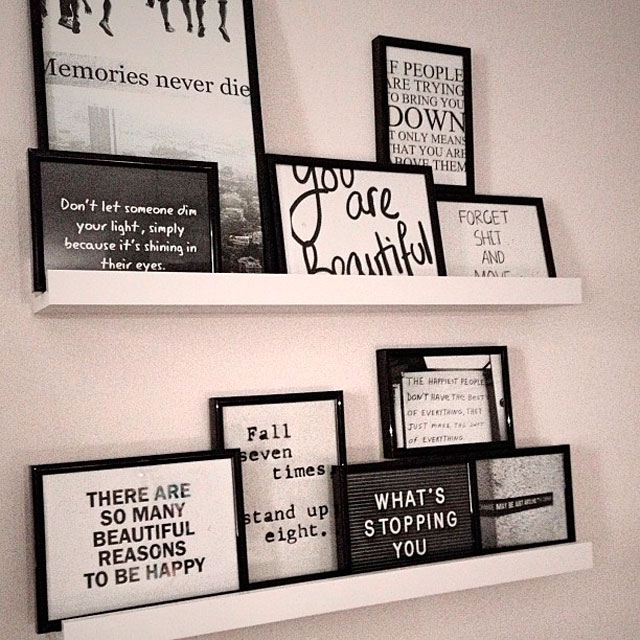 Memories never die
IF PEOPLE
ARE TRYING
TO BRING YOU
DOWN
IT ONLY MEANS
THAT YOU ARE
ABOVE THEM
Don't let someone dim
your light, simply
because it's shining in
their eyes.
you
are
Beautiful
FORGET
SHIT
AND
MOVE
THE HAPPIEST PEOPLE
DON'T HAVE THE BEST
OF EVERYTHING, THEY
JUST MAKE THE BEST
OF EVERYTHING.
Fall
seven
times,
stand up
eight.
THERE ARE
SO MANY
BEAUTIFUL
REASONS
TO BE HAPPY
WHAT'S
STOPPING
YOU
CHANGE MAY BE JUST AROUND THE